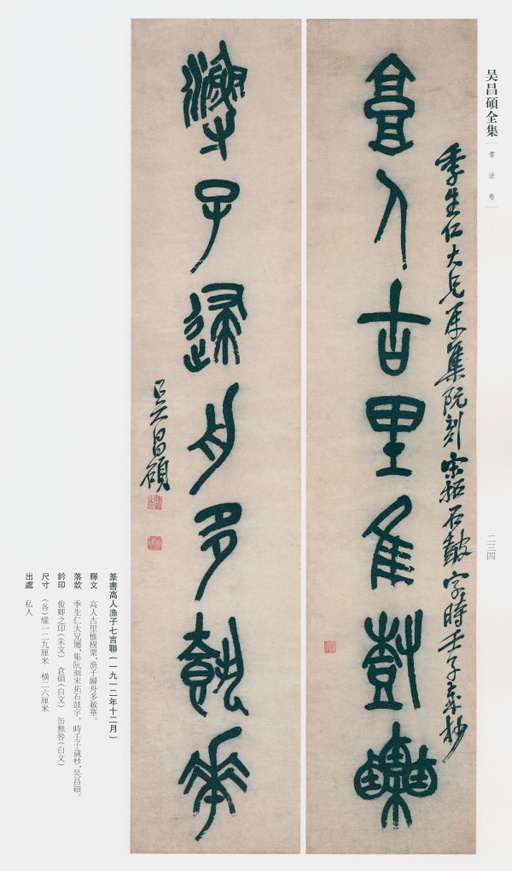 吴昌碩全集
書法卷
二三四
季生仁大兄屬集阮刻宋拓石鼓字時壬子歲杪
高人古里隹尌㮚
漁子歸舟多埶華
吴昌碩
篆書高人漁子七言聯(一九一二年十二月)
釋文 高人古里惟樹栗,漁子歸舟多載華。
落款 季生仁大兄屬,集阮刻宋拓石鼓字。時壬子歲杪,吴昌碩。
鈐印 俊卿之印(朱文) 倉碩(白文) 缶無咎(白文)
尺寸 (各)縱一二九厘米 横二六厘米
出處 私人